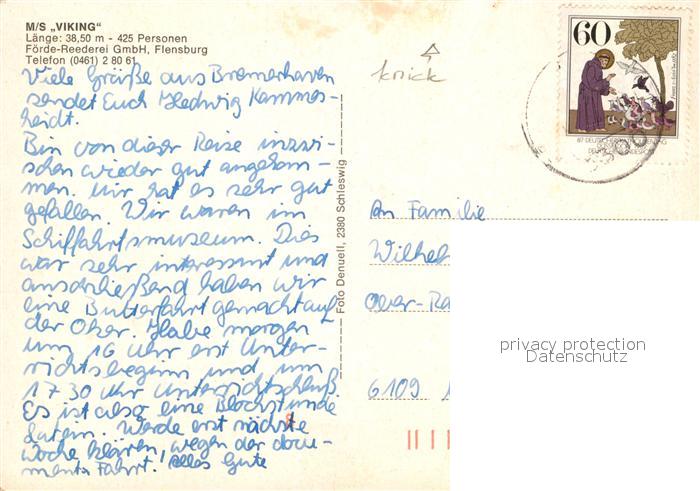 M/S „VIKING“
Länge: 38,50 m - 425 Personen
Förde-Reederei GmbH, Flensburg
Telefon (0461) 2 80 61
Viele Grüße aus Bremerhaven
sendet Euch Hedwig Kammes-
heidt.
Bin von dieser Reise inzwi-
schen wieder gut angekom-
men. Mir hat es sehr gut
gefallen. Wir waren im
Schiffahrtsmuseum. Dies
war sehr interessant und
anschließend haben wir
eine Butterfahrt gemacht auf
der Oker. Habe morgen
um 16 Uhr erst Unter-
richtsbeginn und um
17 30 Uhr Unterrichtschluß.
Es ist also eine Blockstunde
Latein. Werde erst nächste
Woche klären, wegen der docu-
menta Fahrt. Alles Gute
Foto Denuell, 2380 Schleswig
knick
60
An Familie
Wilhel
Ober-Ra
6109
privacy protection
Datenschutz